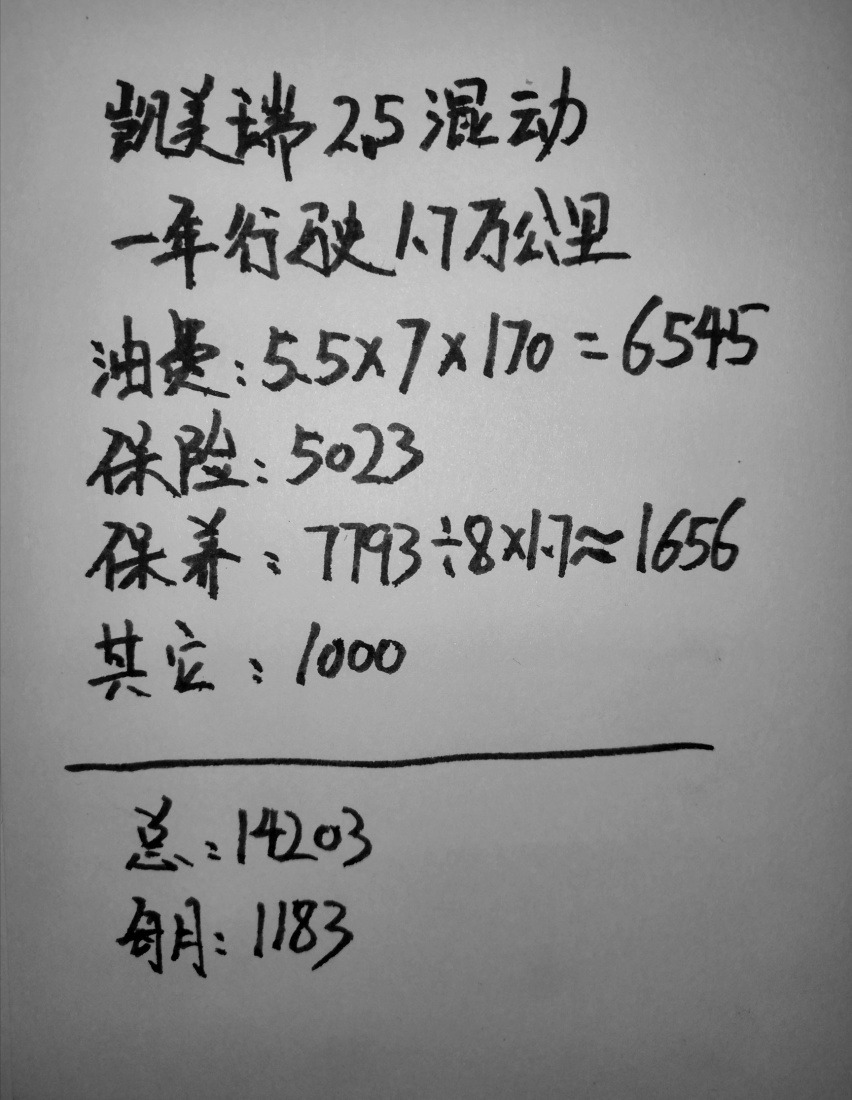 凯美瑞2.5混动
一年行驶1.7万公里
油费:5.5×7×170=6545
保险:5023
保养:7793÷8×1.7≈1656
其它:1000
总:14203
每月:1183